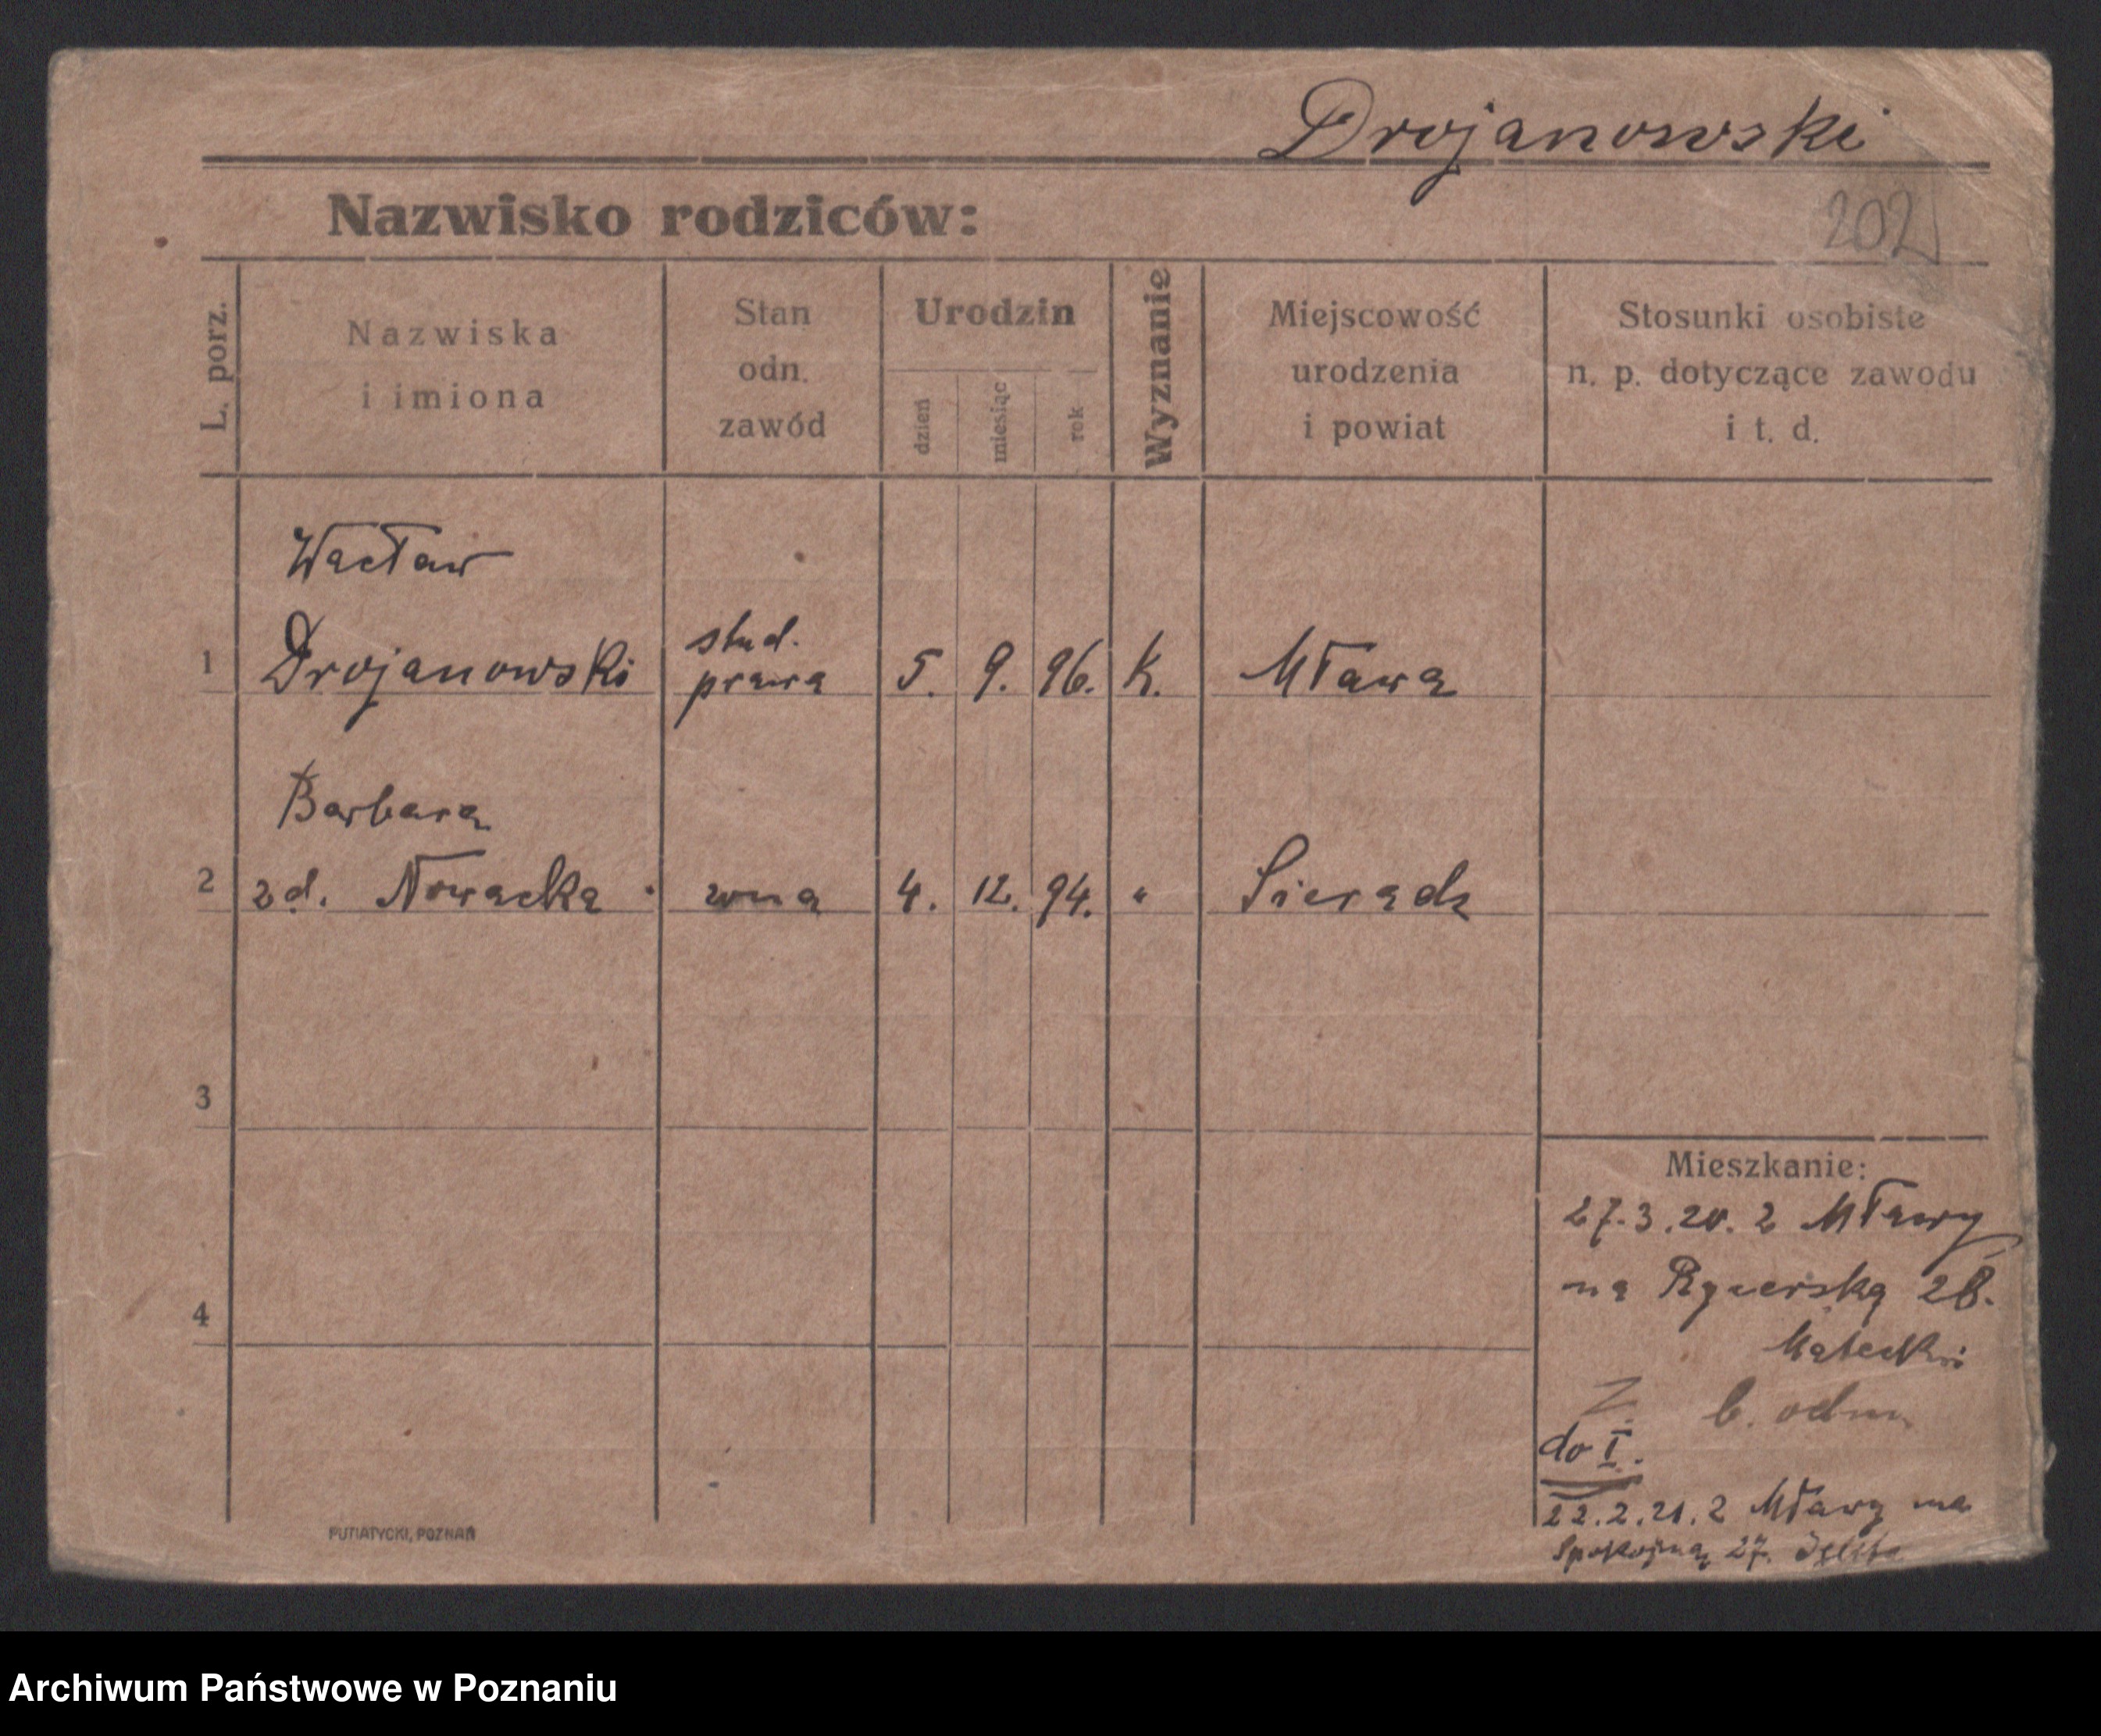 Drojanowski
202
Nazwisko rodziców:
L. porz.
Nazwiska
i imiona
Stan
odn.
zawód
Urodzin
dzień
miesiąc
rok
Wyznanie
Miejscowość
urodzenia
i powiat
Stosunki osobiste
n. p. dotyczące zawodu
i t. d.
Wacław
stud.
1 Drojanowski prawa 5. 9. 96. K. Mława
Barbara
2 zd. Nowacka żona 4. 12. 94. " Sieradz
3
Mieszkanie:
27.3.20. z Mławy
na Rycerską 28.
4
b. odm.
do I.
22.2.21. z Mławy na
Spokojną 27.
PUTIATYCKI, POZNAŃ
Archiwum Państwowe w Poznaniu